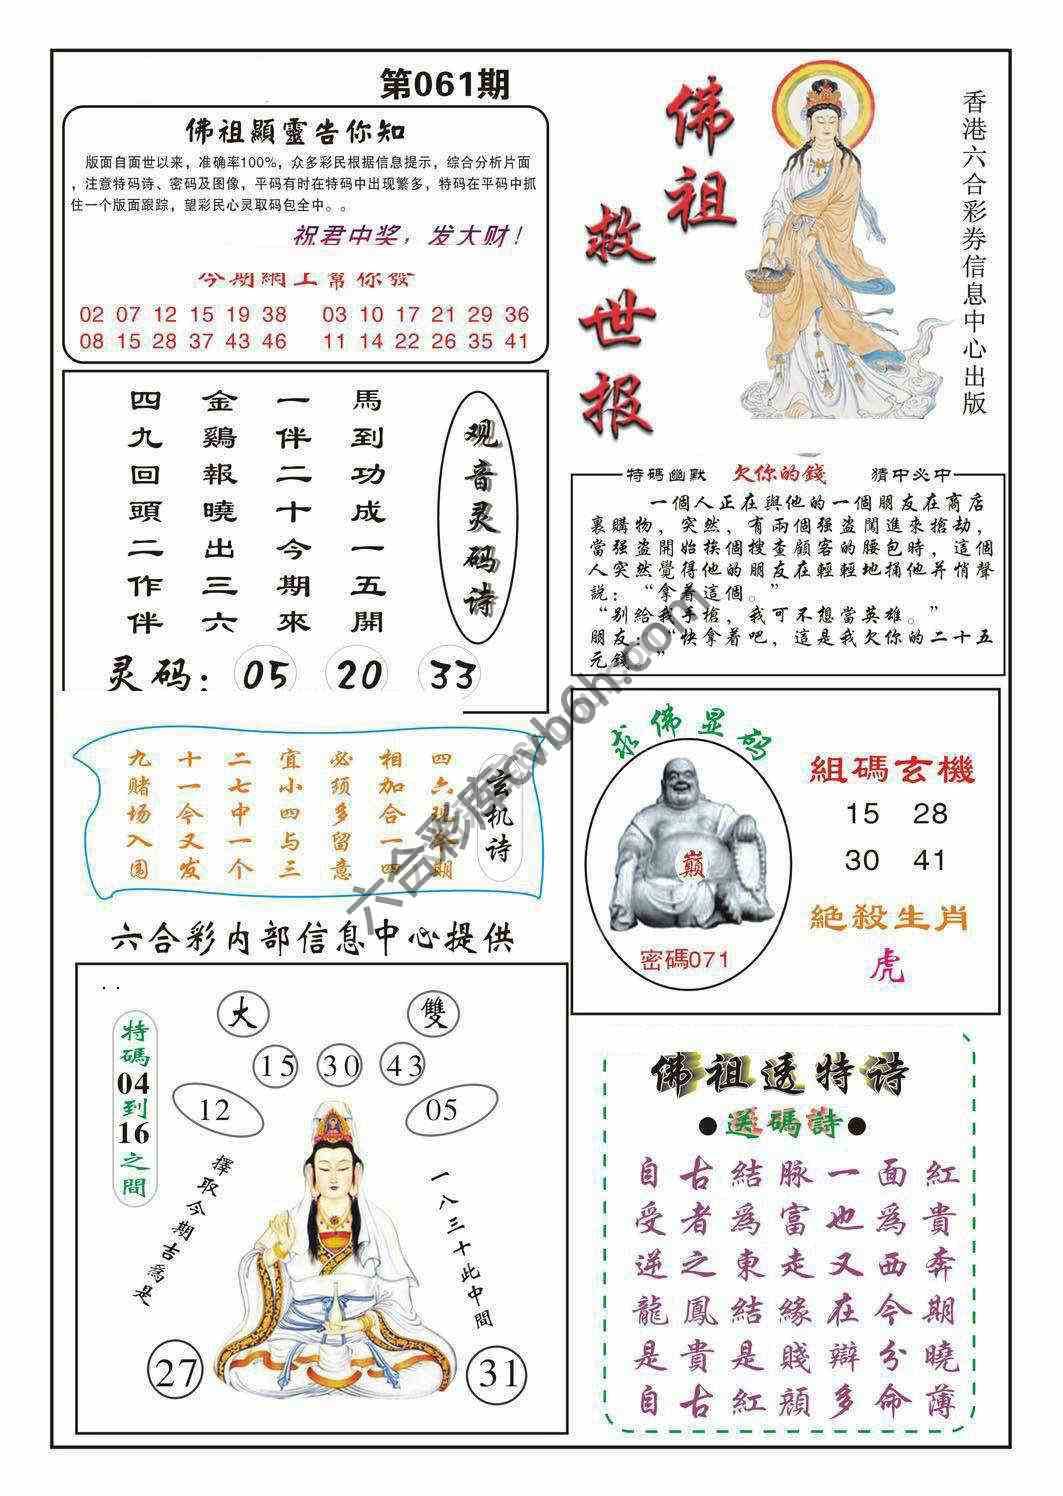 第061期
佛祖顯靈告你知
版面自面世以来，准确率100%，众多彩民根据信息提示，综合分析片面
，注意特码诗、密码及图像，平码有时在特码中出现繁多，特码在平码中抓
住一个版面跟踪，望彩民心灵取码包全中。。
祝君中奖，发大财！
今期網上幫你發
02 07 12 15 19 38 03 10 17 21 29 36
08 15 28 37 43 46 11 14 22 26 35 41
佛祖
救世报
香港六合彩券信息中心出版
观音灵码诗
馬到功成一五開
一伴二十今期來
金鷄報曉出三六
四九回頭二作伴
灵码：05 20 33
特碼幽默 欠你的錢 猜中必中
一個人正在與他的一個朋友在商店
裏購物，突然，有兩個强盗闖進來搶劫，
當强盗開始挨個搜查顧客的腰包時，這個
人突然覺得他的朋友在輕輕地捅他并悄聲
説：“拿着這個。”
“别給我手槍，我可不想當英雄。”
朋友：“快拿着吧，這是我欠你的二十五
元錢。”
玄机诗
四六现本期
相加合一四
必须多留意
宜小四与三
二七中一个
十一今又发
九赌场入围
求佛显码
巔
密碼071
組碼玄機
15 28
30 41
絶殺生肖
虎
六合彩内部信息中心提供
特碼04到16之間
大 雙
15 30 43
12 05
擇取今期吉爲是
一八三十此中間
27 31
佛祖透特诗
●送碼詩●
自古結脉一面紅
受者爲富也爲貴
逆之東走又西奔
龍鳳結緣在今期
是貴是賤辯分曉
自古紅顔多命薄
六合彩库cvb6h.com